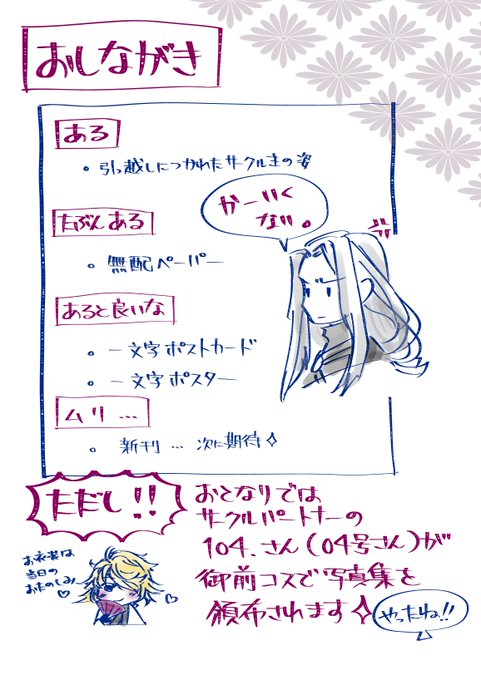 おしながき
ある
・引っ越しにつかれたサークル主の姿
かーいく
ない。
たぶんある
・無配ペーパー
あると良いな
・一文字ポストカード
・一文字ポスター
ムリ…
・新刊…次に期待✧
ただし!!
おとなりでは
サークルパートナーの
104.さん(04号さん)が
御前コスで写真集を
頒布されます✧
やったね!!
お衣装は
当日の
おたのしみ♡